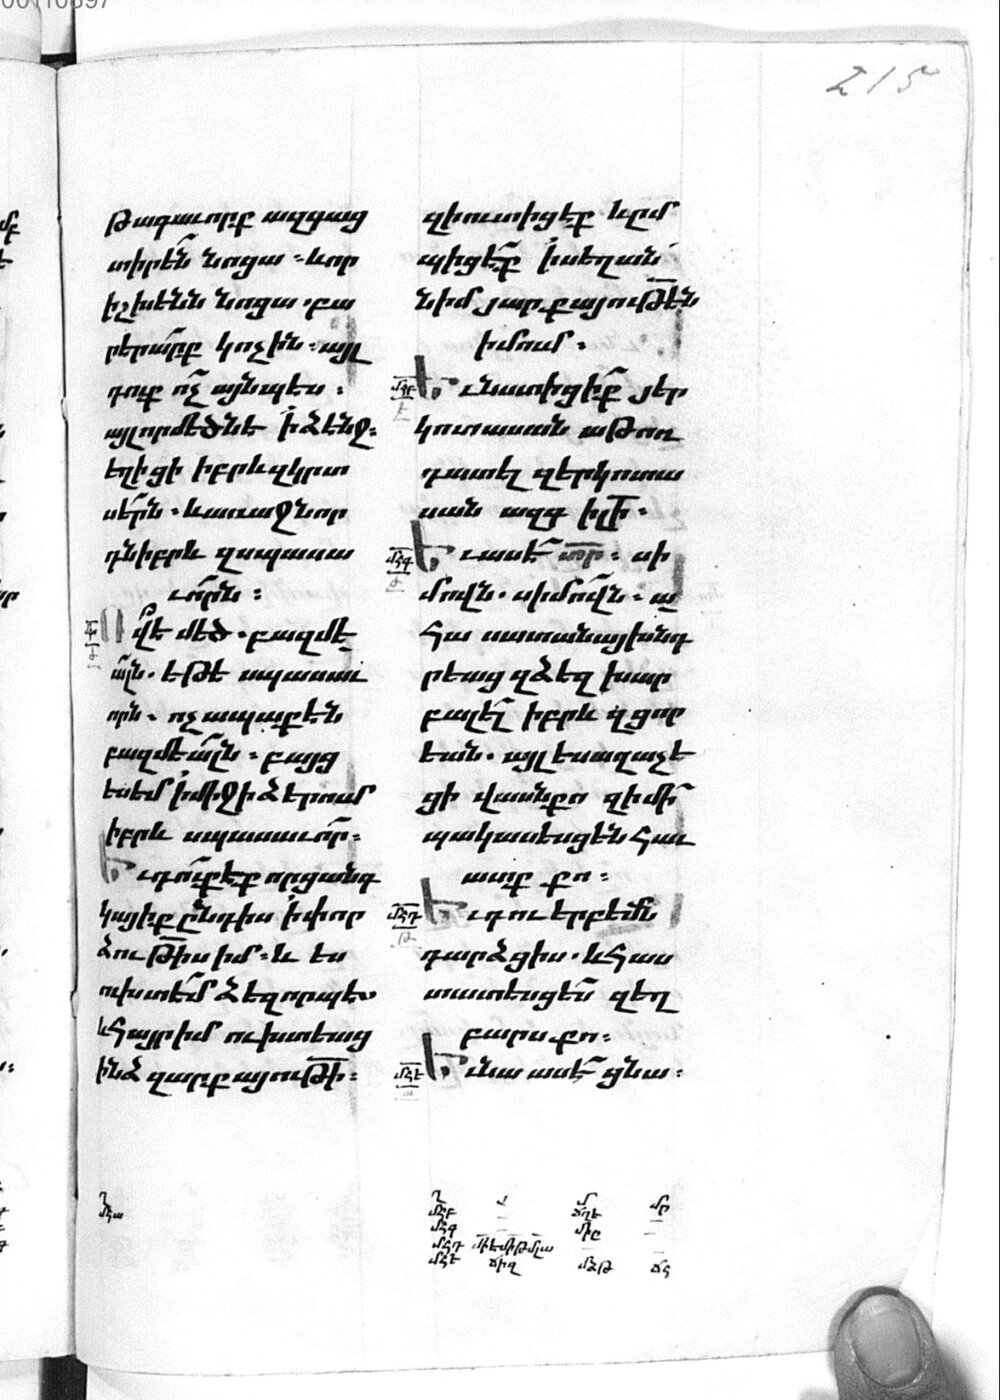 215
թագաւորք ազգաց
տիրեն նոցա. և որ
իշխենն նոցա. բա
րերարք կոչին. այլ
դուք ոչ այնպէս.
այլ որ մեծն է ի ձենջ.
եղիցի իբրև զկրտ
սերն. և առաջնոր
դն իբրև զսպասա
ւորն.
Ո վ է մեծ. բազմե
ալն. եթե սպասաւ
որն. ոչ ապաքէն
բազմեալն. բայց
ես եմ ի միջի ձերում
իբրև սպասաւոր.
Եւ դուք էք որ ցանգ
կայիք ընդ իս ի փոր
ձութիս իմ. և ես
ուխտեմ ձեզ որպէս
և հայր իմ ուխտեաց
ինձ զարքայութի.
զի ուտիցէք և ըմ
պիցէք ի սեղան
նիմ յարքայութեն
իմում.
մհբ
Եւ նստիցիք յեր
կոտասան աթոռ
դատել զերկոտա
սան ազգ իլի.
մհգ
Եւ ասէ տր. սի
մովն. սիմովն. ա
հա սատանայ խնդ
րեաց զձեզ խար
բալել իբրև զցոր
եան. այլ ես աղաչե
ցի վասն քո զի մի
պակասեսցեն հաւ
ատք քո.
մհդ
Եւ դու երբեմն
դարձցիս. և հաս
տատեսցես զեղ
բարս քո.
մհե
Եւ նա ասէ ցնա.
մհա
մհբ
մհգ
մհդ
մհե